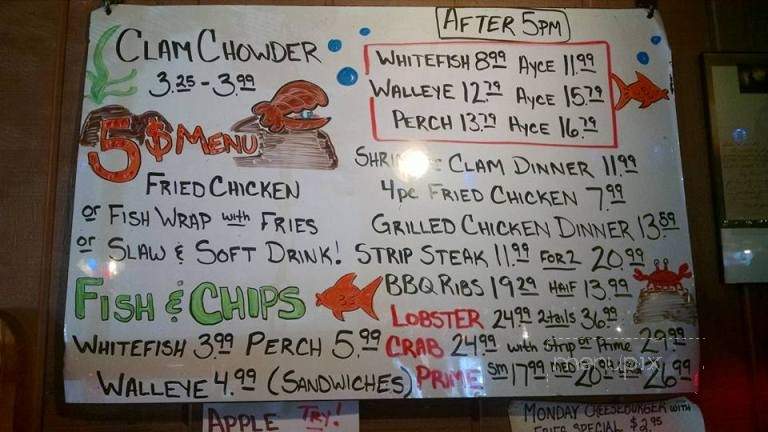 CLAM CHOWDER
3.25 - 3.99
5$ MENU
FRIED CHICKEN
or FISH WRAP with FRIES
or SLAW & SOFT DRINK!
FISH & CHIPS
WHITEFISH 3.99 PERCH 5.99
WALLEYE 4.99 (SANDWICHES)
AFTER 5PM
WHITEFISH 8.99 AYCE 11.99
WALLEYE 12.79 AYCE 15.79
PERCH 13.79 AYCE 16.79
CLAM DINNER 11.99
4pc FRIED CHICKEN 7.99
GRILLED CHICKEN DINNER 13.59
STRIP STEAK 11.99 FOR 2 20.99
BBQ RIBS 19.29 HALF 13.99
LOBSTER 24.99 2 tails 36.99
CRAB 24.99 with Strip or Prime 29.99
PRIME Sm 17.99 MED 20.99 26.99
APPLE TRY!
MONDAY CHEESEBURGER WITH
FRIES SPECIAL $2.95
menupix